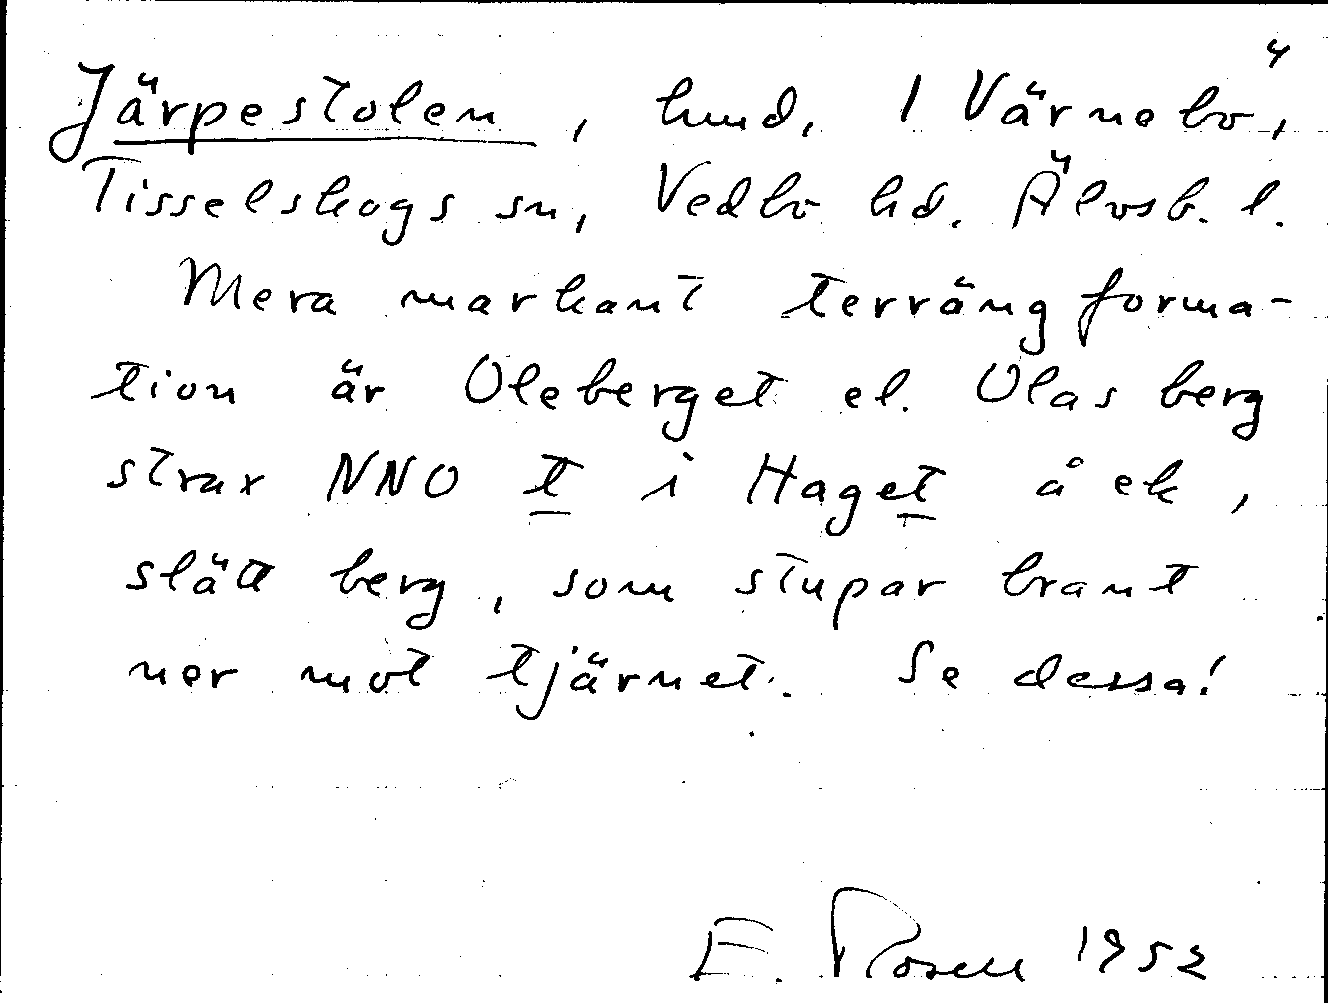 4
Järpestolen, hmd. 1 Värnebo,
Tisselskogs sn, Vedbo hd. Älvsb. l.
Mera markant terrängforma-
tion är Oleberget el. Olas berg
strax NNO t i Haget å ek,
slätt berg, som stupar brant
ner mot tjärnet. Se dessa!
E. Rosell 1952